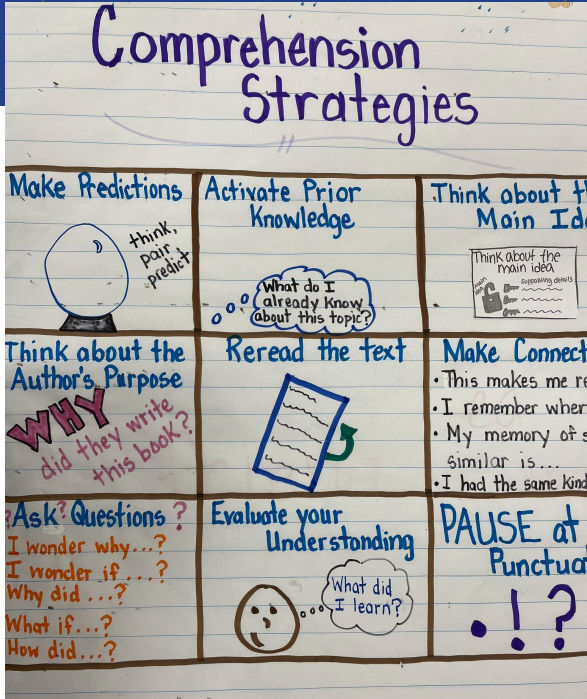 Comprehension
Strategies
Make Predictions
think,
pair,
predict
Activate Prior
Knowledge
What do I
already know
about this topic?
Think about th
Main Id
Think about the
main idea
main
idea
supporting details
Think about the
Author's Purpose
WHY
did they write
this book?
Reread the text
Make Connect
• This makes me re
• I remember wher
• My memory of s
similar is...
• I had the same kind
?Ask? Questions ?
I wonder why...?
I wonder if ...?
Why did ...?
What if...?
How did...?
Evaluate your
Understanding
What did
I learn?
PAUSE at
Punctua
. ! ?